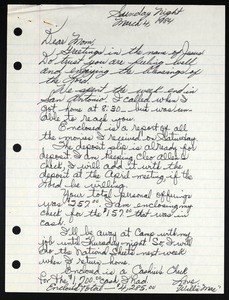 Sunday Night
March 4, 1984
Dear Mom,
Greetings in the name of Jesus!
I trust you are feeling well
and enjoying the blessings of
the Lord.
We spent the week end in
San Antonio. I called when I
got home at 8:30 but was un-
able to reach you.
Enclosed is a report of all
the monies I received on Saturday.
The deposit slip is already for
deposit. I am keeping Cleo Allen's
check, I will add it until the
deposit at the April meeting if the
Lord be willing.
Your total personal offerings
was $257.00. I am enclosing my
check for the $157.00 that was in
cash.
I'll be away at Camp with my
job until Thursday night. So I will
do the National Sheets next week
when I return home.
Enclosed is a Cashier's Check
for the $ 700.00 cash I had.
Love
Enclosed Total
Willie Mae